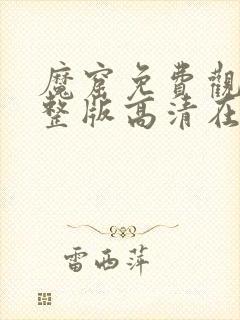 魔窟免費觀
整版高清在
雷西萍